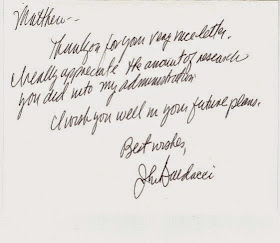 Matthew--
Thank you for your very nice letter.
I really appreciate the amount of research
you did into my administration
I wish you well in your future plans.
Best wishes,
John Baldacci